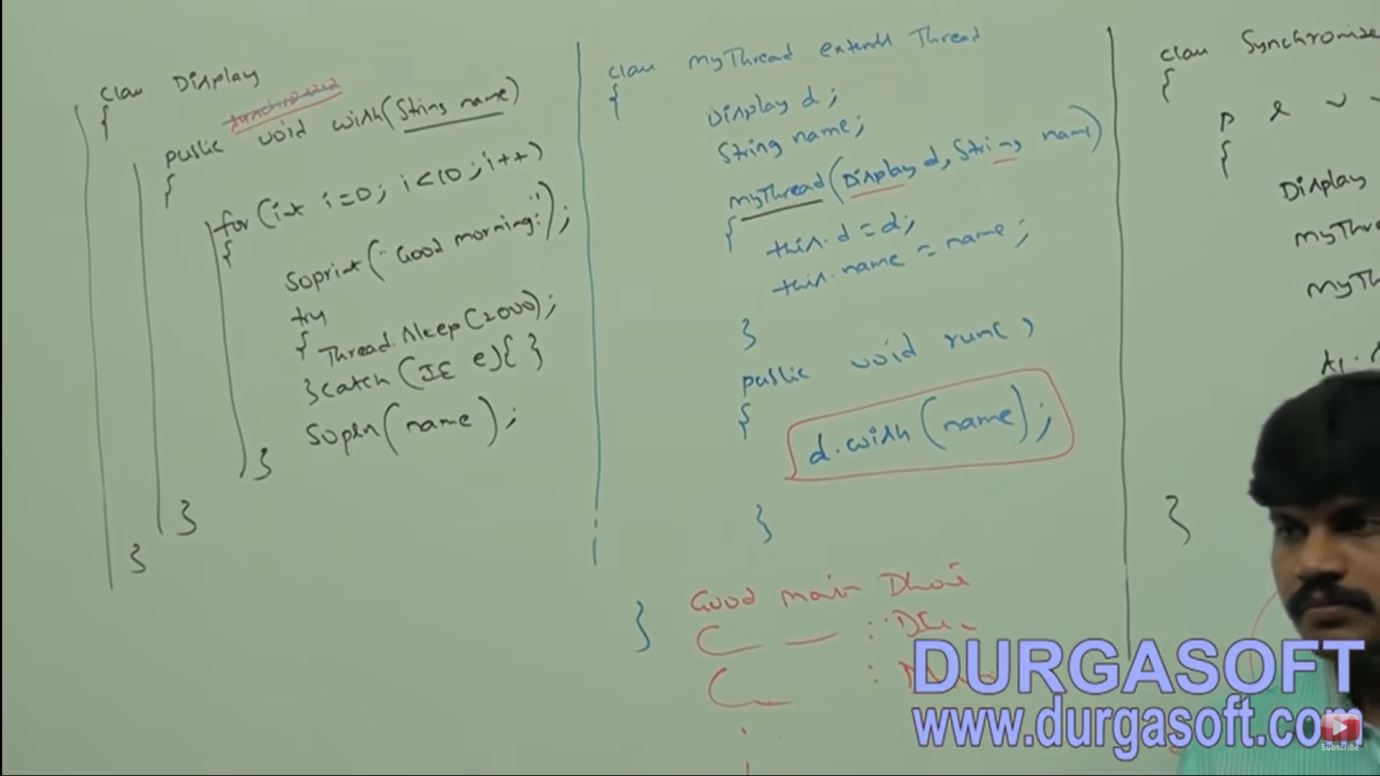 class Display
{
synchronized
public void wish(String name)
{
for(int i=0; i<10; i++)
{
Soprint("Good morning:");
try
{
Thread.sleep(2000);
}catch(IE e){ }
Sopln(name);
}
}
}
class myThread extends Thread
{
Display d;
String name;
myThread(Display d, String name)
{
this.d=d;
this.name=name;
}
public void run()
{
d.wish(name);
}
}
Good
Class Synchronize
{
P S V
{
Display
myThre
myTh
t1.
}
DURGASOFT
www.durgasoft.com
Subscribe